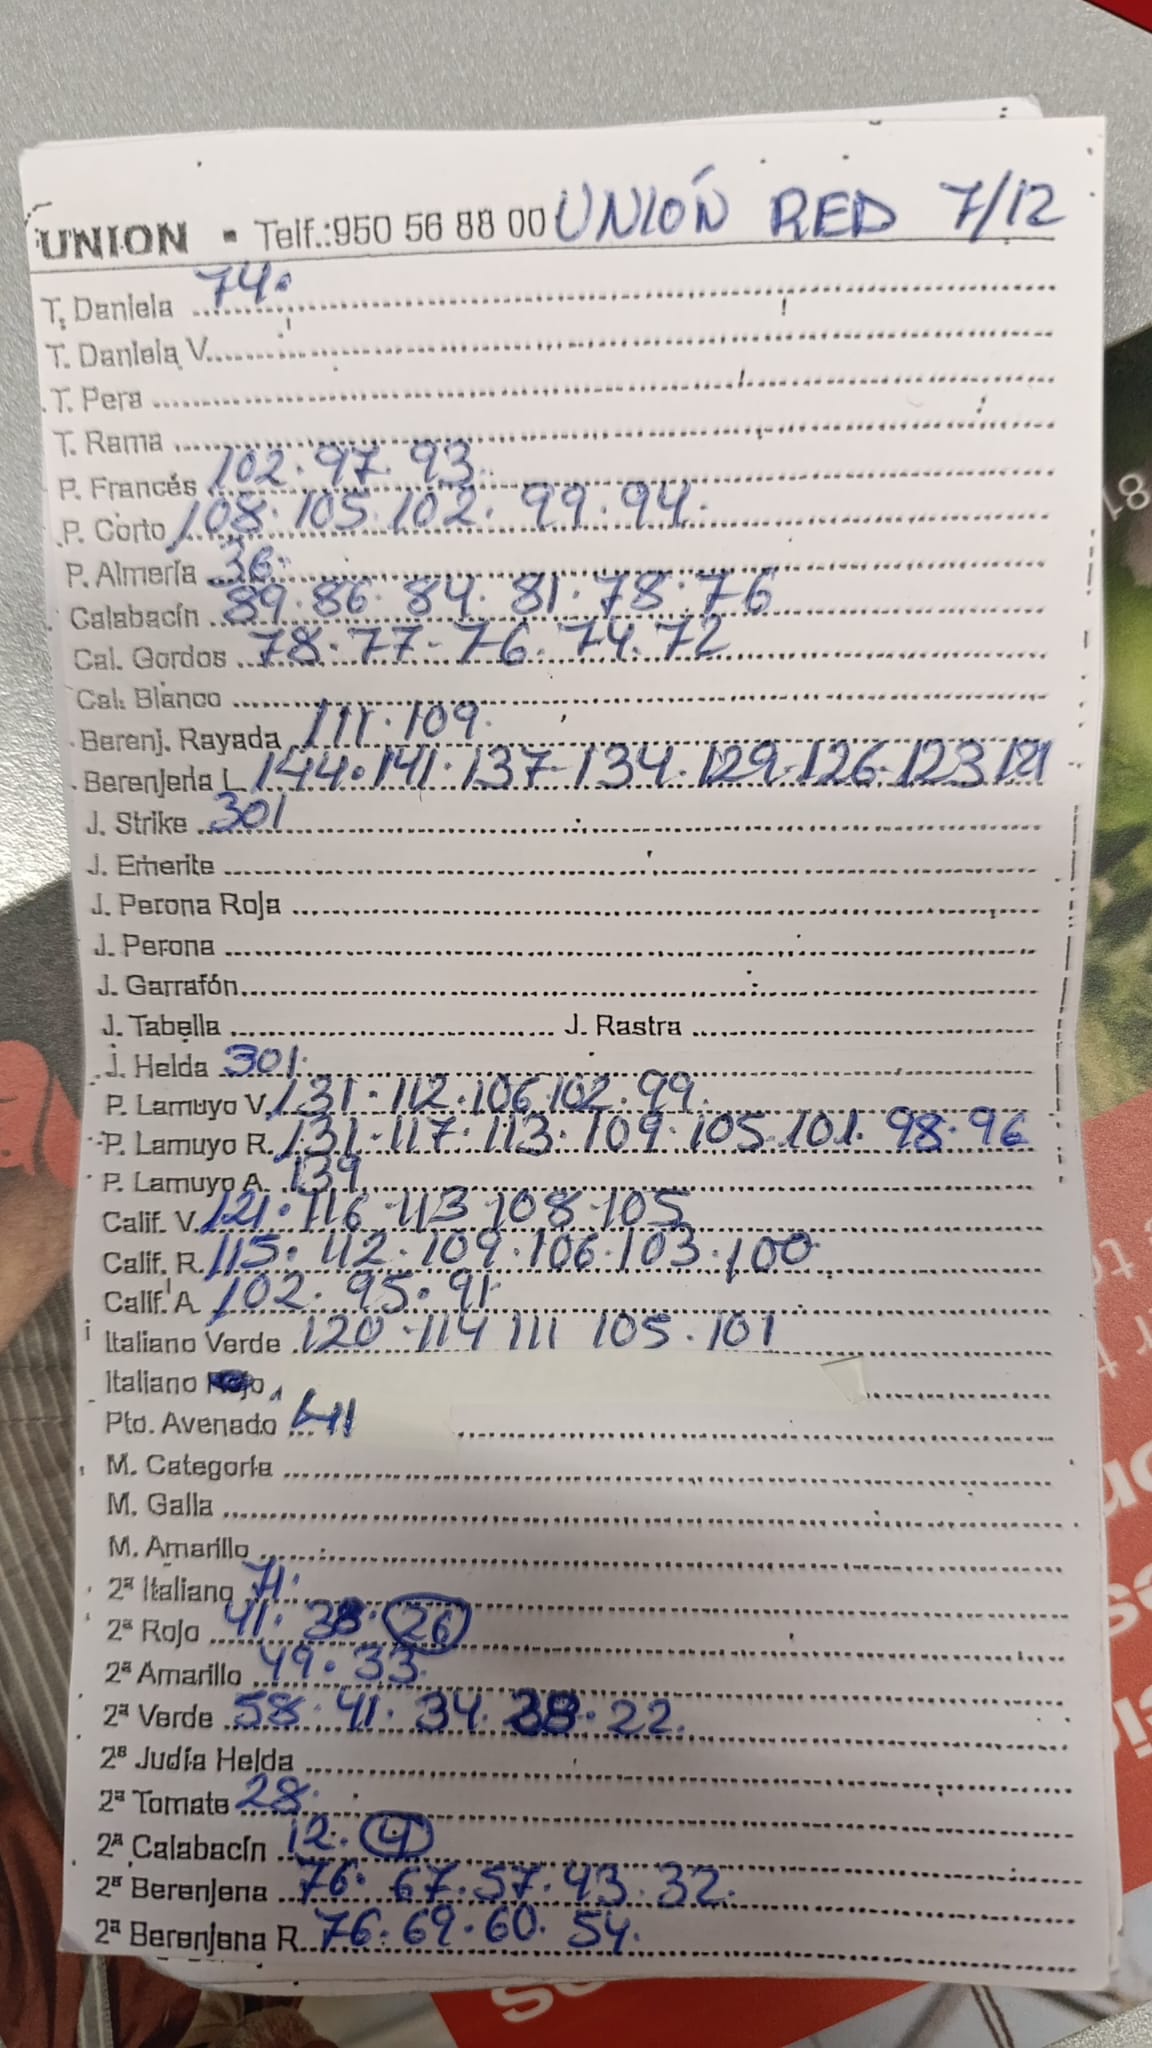 UNION - Telf.:950 56 88 00 UNIÓN RED 7/12
T. Daniela 74.
T. Daniela V.
T. Pera
T. Rama
P. Francés 102.97.93.
P. Corto 108.105.102.99.94.
P. Almería 36.
Calabacín 89.86.84.81.78.76
Cal. Gordos 78.77-76.74.72
Cal. Blanco
Berenj. Rayada 111.109.
Berenjena L. 144.141.137-134.129.126.123 121
J. Strike 301
J. Emerite
J. Perona Roja
J. Perona
J. Garrafón
J. Tabella J. Rastra
J. Helda 301.
P. Lamuyo V. 131.112.106 102.99.
P. Lamuyo R. 131.117.113.109.105.101.98.96
P. Lamuyo A. 139
Calif. V. 121.116.113.108.105
Calif. R. 115.112.109.106.103.100
Calif. A 102.95.91.
Italiano Verde 120.114 111 105.101
Italiano
Pto. Avenado 41
M. Categoría
M. Galia
M. Amarillo
2ª Italiano 71.
2ª Rojo 41.38.26
2ª Amarillo 49.33.
2ª Verde 58.41.34.28.22.
2ª Judía Helda
2ª Tomate 28.
2ª Calabacín 12.4
2ª Berenjena 76.67.57.43.32.
2ª Berenjena R. 76.69.60.54.